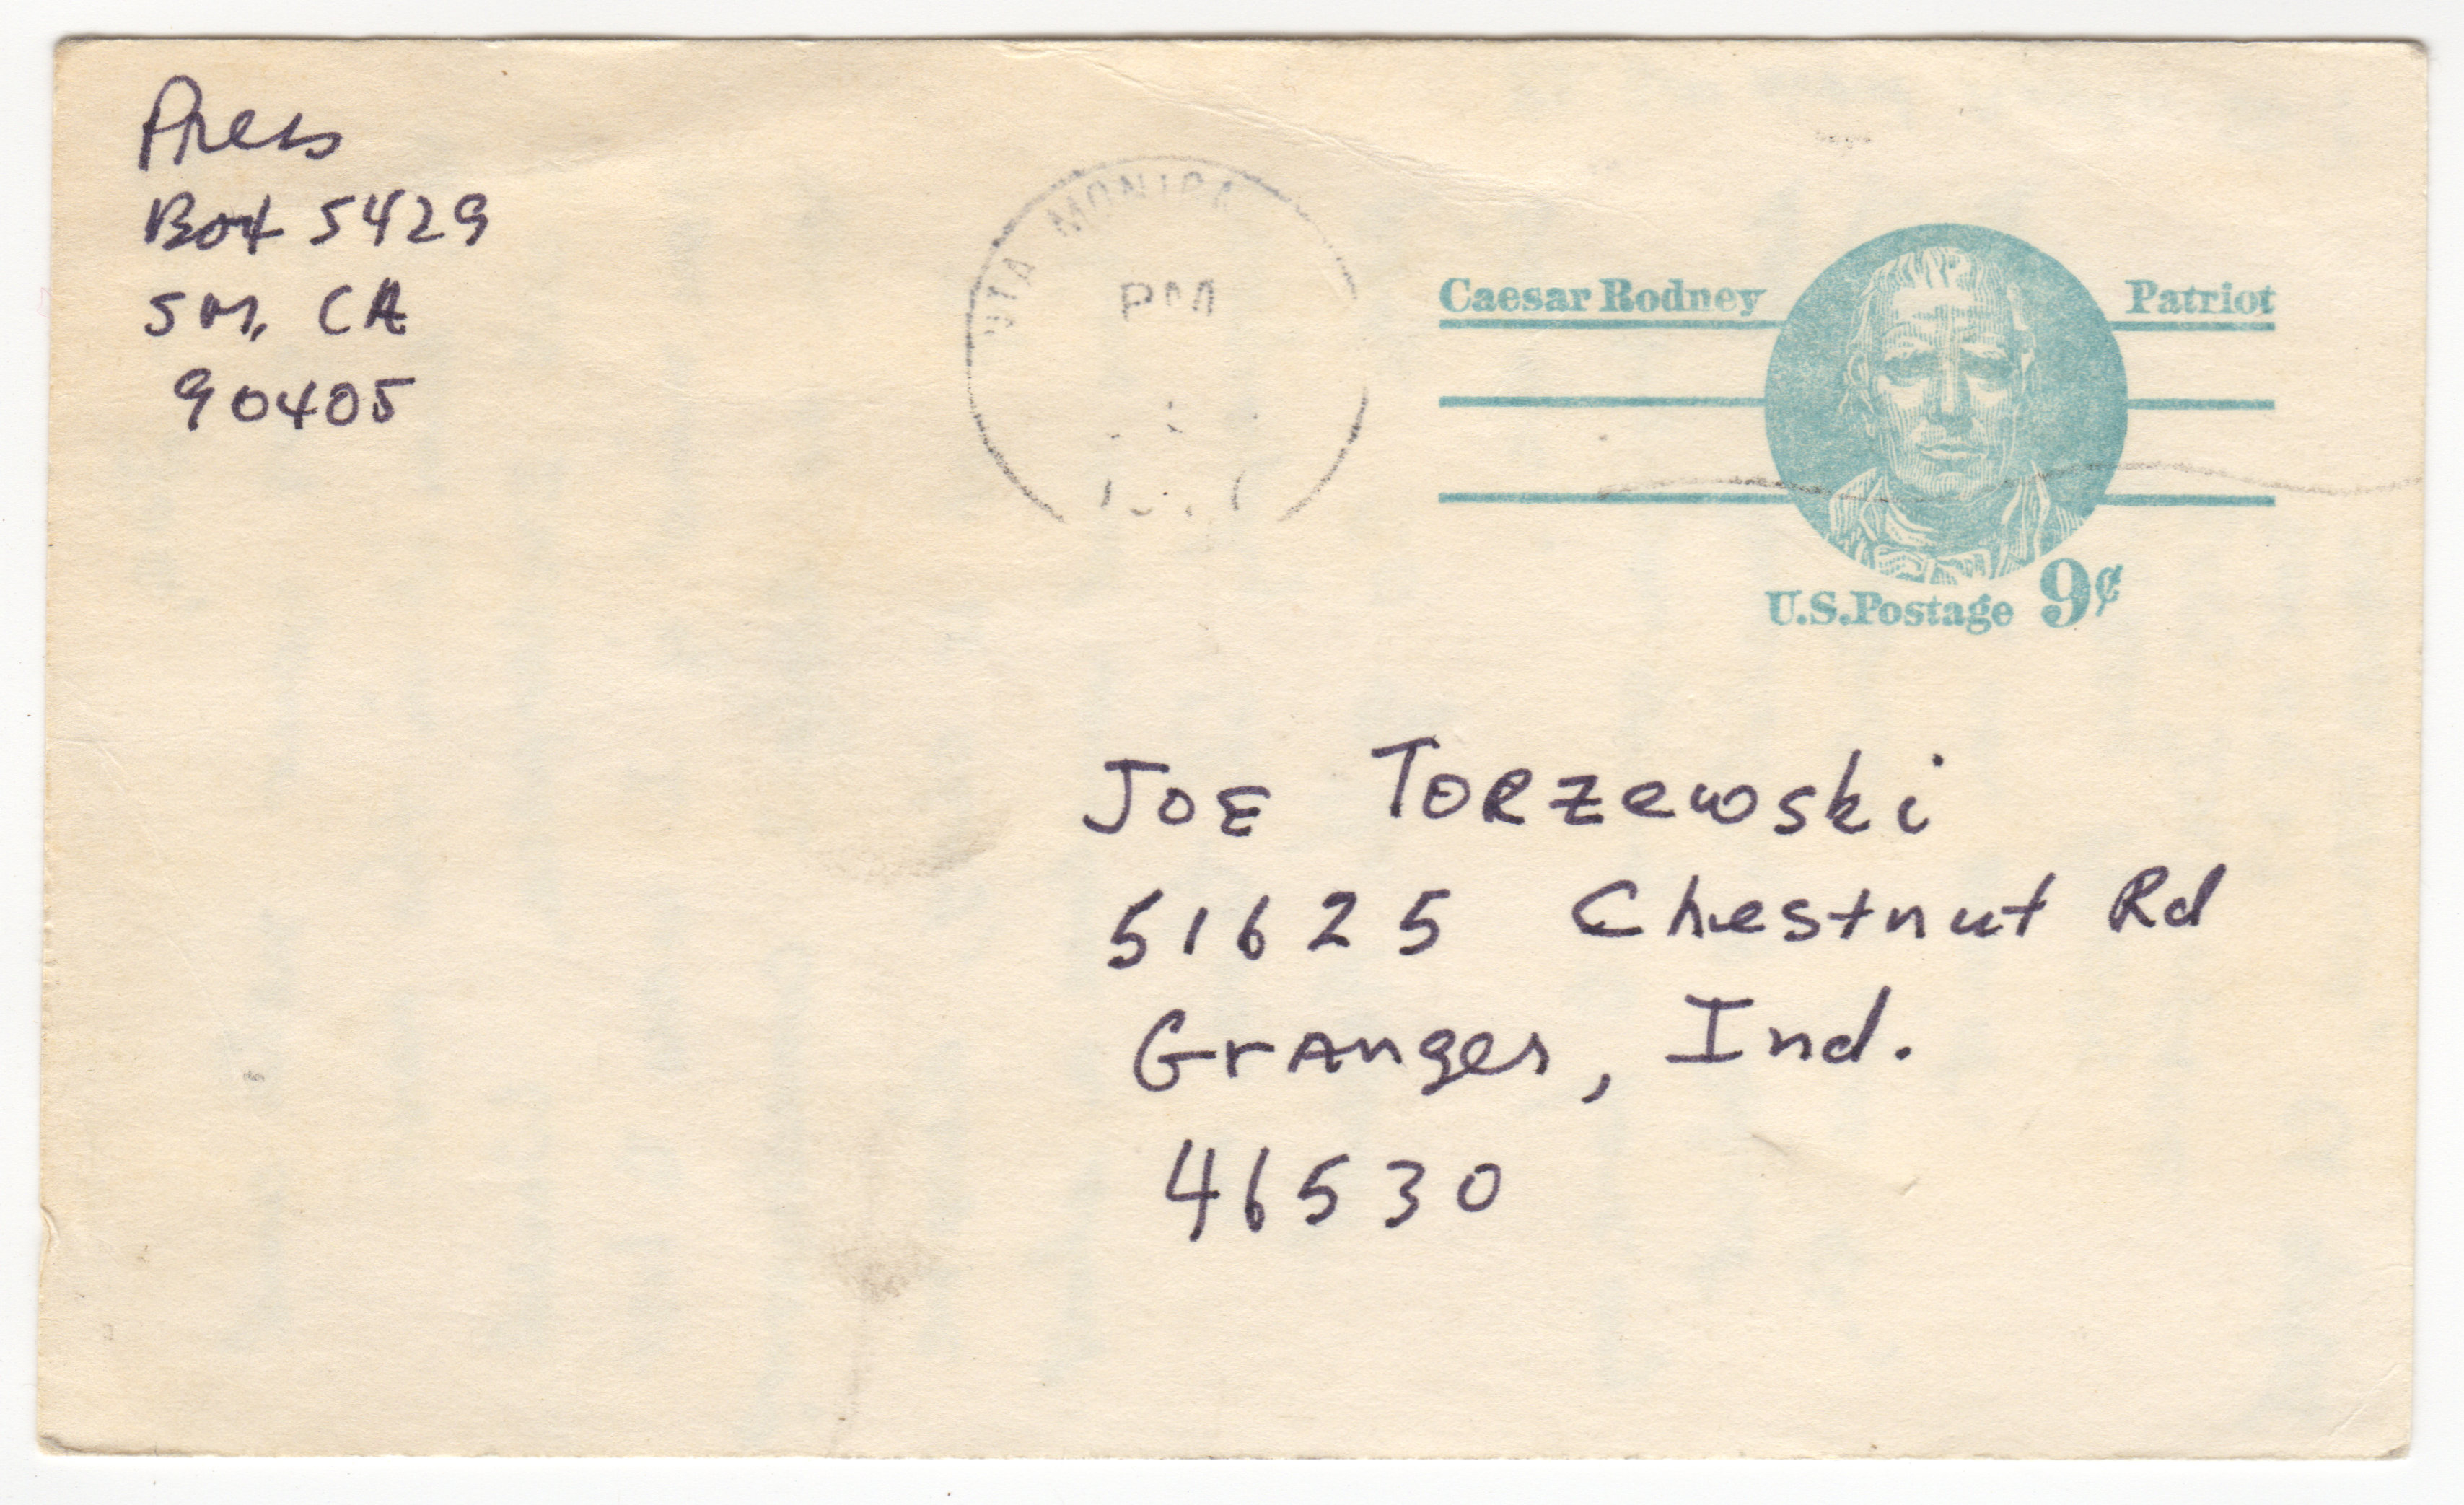 Press
Box 5429
SM, CA
90405
TA MONICA
PM
Caesar Rodney Patriot
U.S.Postage 9¢
JOE TORZEwski
51625 Chestnut Rd
Granger, Ind.
46530